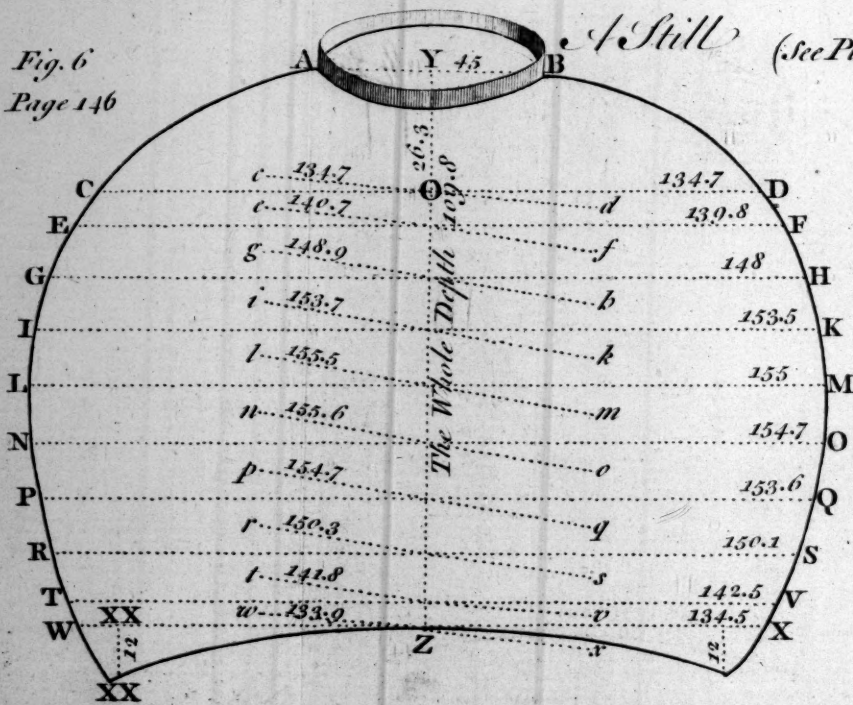 Fig. 6
Page 146
A Still
(See
A Y 45 B
26.3
The Whole Depth 109.8
C c 134.7 O 134.7 D
d
E e 140.7 139.8 F
f
G g 148.9 148 H
h
I i 153.7 153.5 K
k
L l 155.5 155 M
m
N n 155.6 154.7 O
o
P p 154.7 153.6 Q
q
R r 150.3 150.1 S
s
T t 141.8 142.5 V
v
XX
W w 133.9 Z 134.5 X
x
12 12
XX